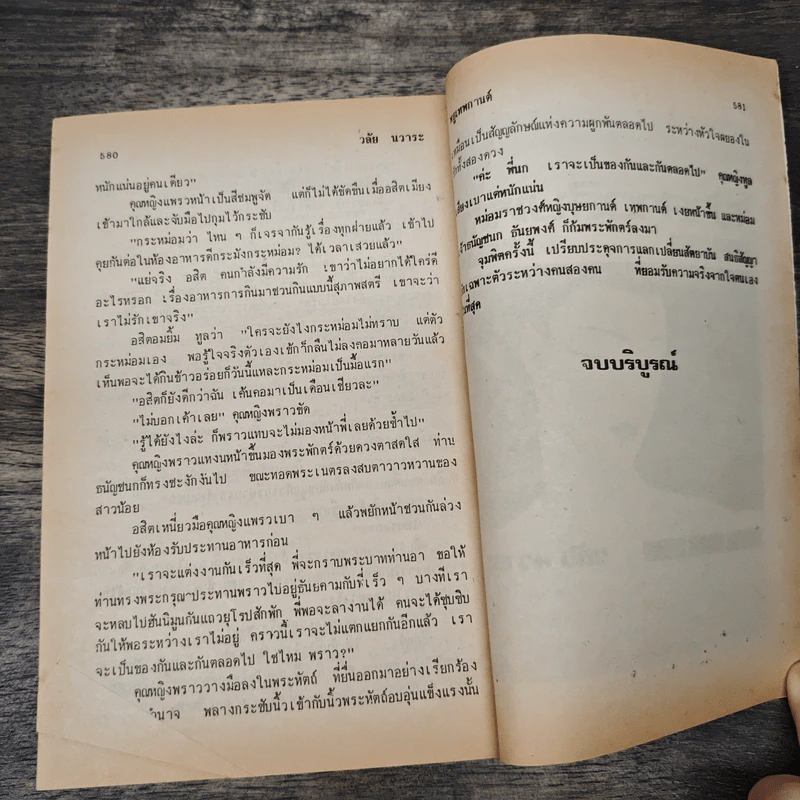 580
วลัย นวาระ
หนักแน่นอยู่คนเดียว"
คุณหญิงแพรวหน้าเป็นสีชมพูจัด แต่ก็ไม่ได้ขัดขืนเมื่ออสิตเมียง
เข้ามาใกล้และจับมือไปกุมไว้กระชับ
"กระหม่อมว่า ไหน ๆ ก็เจรจากันรู้เรื่องทุกฝ่ายแล้ว เข้าไป
คุยกันต่อในห้องอาหารดีกระมังกระหม่อม? ได้เวลาเสวยแล้ว"
"แย่จริง อสิต คนกำลังมีความรัก เขาว่าไม่อยากได้ใคร่ดี
อะไรหรอก เรื่องอาหารการกินมาชวนกินแบบนี้สุภาพสตรี เขาจะว่า
เราไม่รักเขาจริง"
อสิตอมยิ้ม ทูลว่า "ใครจะยังไงกระหม่อมไม่ทราบ แต่ตัว
กระหม่อมเอง พอรู้ใจจริงตัวเองเข้าก็กลืนไม่ลงคอมาหลายวันแล้ว
เห็นพอจะได้กินข้าวอร่อยก็วันนี้แหละกระหม่อมเป็นมื้อแรก"
"อสิตก็ยังดีกว่าฉัน เค้นคอมาเป็นเดือนเชียวละ"
"ไม่บอกเค้าเลย" คุณหญิงพราวขัด
"รู้ได้ยังไงล่ะ ก็พราวแทบจะไม่มองหน้าพี่เลยด้วยซ้ำไป"
คุณหญิงพราวแหงนหน้าขึ้นมองพระพักตร์ด้วยดวงตาสดใส ท่าน
ธนัญชนกก็ทรงชะงักงันไป ขณะทอดพระเนตรลงสบตาวาวหวานของ
สาวน้อย
อสิตเหนี่ยวมือคุณหญิงแพรวเบา ๆ แล้วพยักหน้าชวนกันล่วง
หน้าไปยังห้องรับประทานอาหารก่อน
"เราจะแต่งงานกันเร็วที่สุด พี่จะกราบพระบาทท่านอา ขอให้
ท่านทรงพระกรุณาประทานพราวไปอยู่ธันยคามกับพี่เร็ว ๆ บางทีเรา
จะหลบไปฮันนีมูนกันแถวยุโรปสักพัก พี่พอจะลางานได้ คนจะได้ซุบซิบ
กันให้พอระหว่างเราไม่อยู่ คราวนี้เราจะไม่แตกแยกกันอีกแล้ว เรา
จะเป็นของกันและกันตลอดไป ใช่ไหม พราว?"
คุณหญิงพราววางมือลงในพระหัตถ์ ที่ยื่นออกมาอย่างเรียกร้อง
พลางกระชับนิ้วเข้ากับนิ้วพระหัตถ์อบอุ่นแข็งแรงนั้น
581
เหมือนเป็นสัญญลักษณ์แห่งความผูกพันตลอดไป ระหว่างหัวใจผยองใน
ทั้งสองดวง
"ค่ะ พี่นก เราจะเป็นของกันและกันตลอดไป" คุณหญิงทูล
เสียงเบาแต่หนักแน่น
หม่อมราชวงศ์หญิงบุษยกานต์ เทพกานต์ เงยหน้าขึ้น และหม่อม
เจ้าธนัญชนก ธันยพงศ์ ก็ก้มพระพักตร์ลงมา
จุมพิตครั้งนี้ เปรียบประดุจการแลกเปลี่ยนสัตยาบัน สนธิสัญญา
เฉพาะตัวระหว่างคนสองคน ที่ยอมรับความจริงจากใจตนเอง
ที่สุด
จบบริบูรณ์